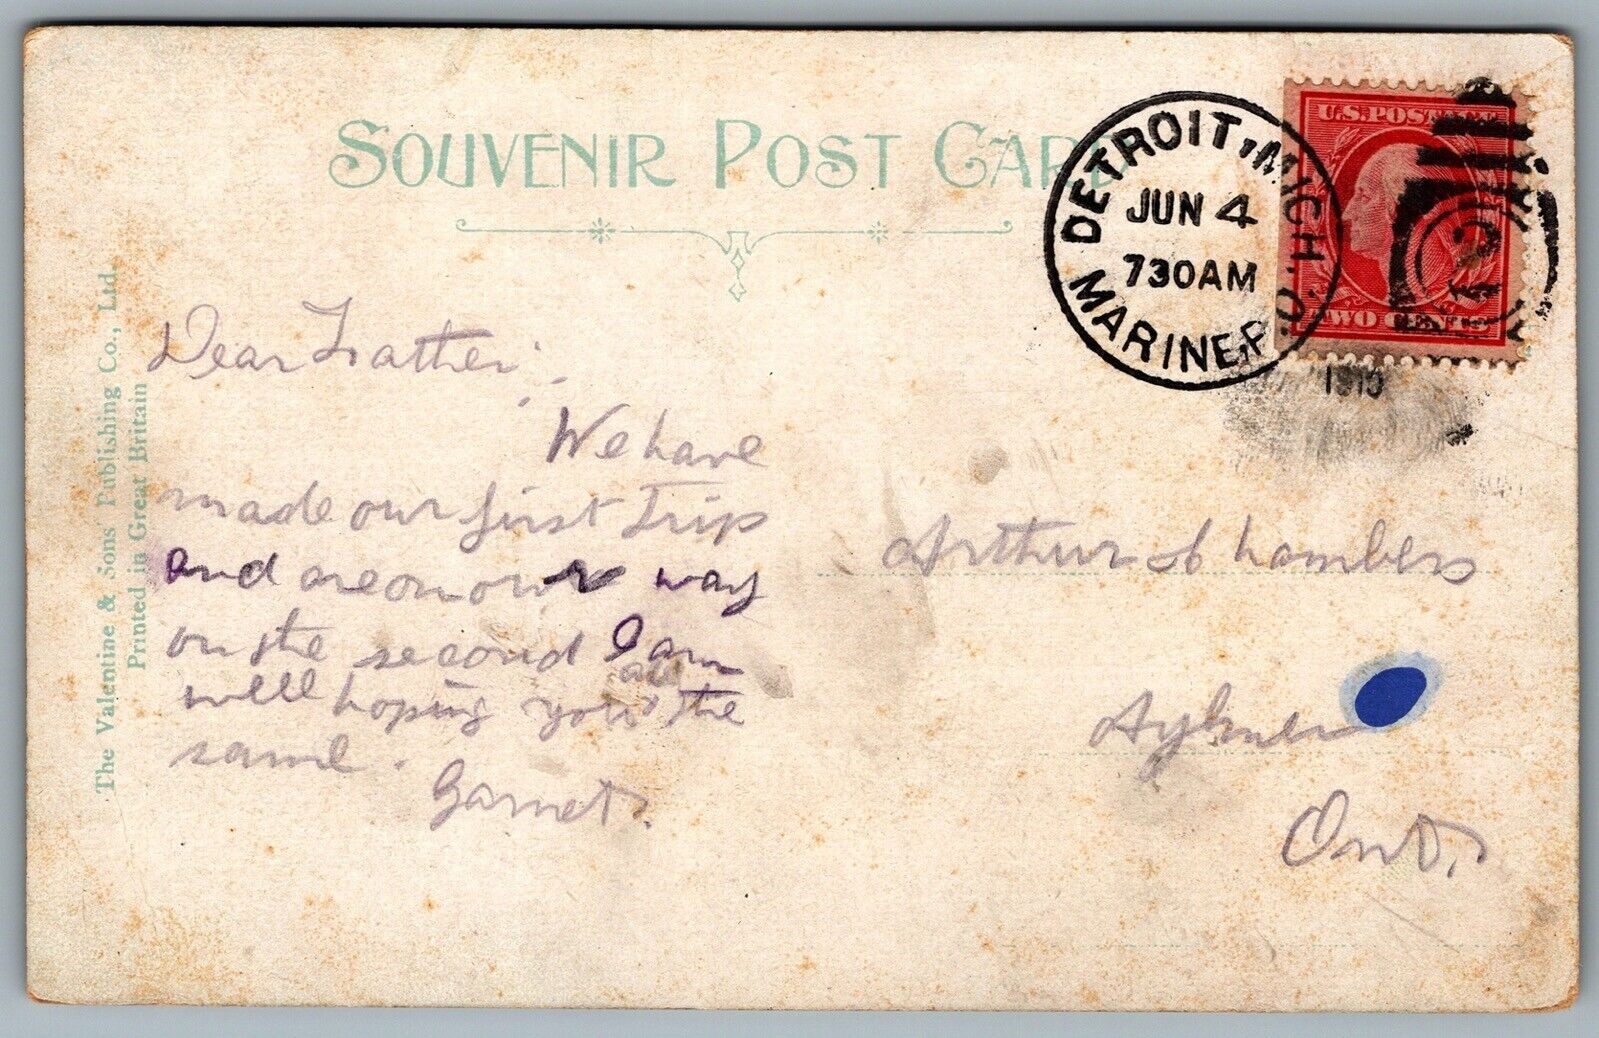 SOUVENIR POST CARD
DETROIT, MICH.
JUN 4
730AM
MARINE P.O.
1910
U.S. POSTAGE
TWO CENTS
The Valentine & Sons' Publishing Co., Ltd.
Printed in Great Britain
Dear Father:
We have
made our first Trip
and are on our way
on the second I am
well hoping you all the
same.
Garnet.
Arthur Chambers
Aylmer
Ont.